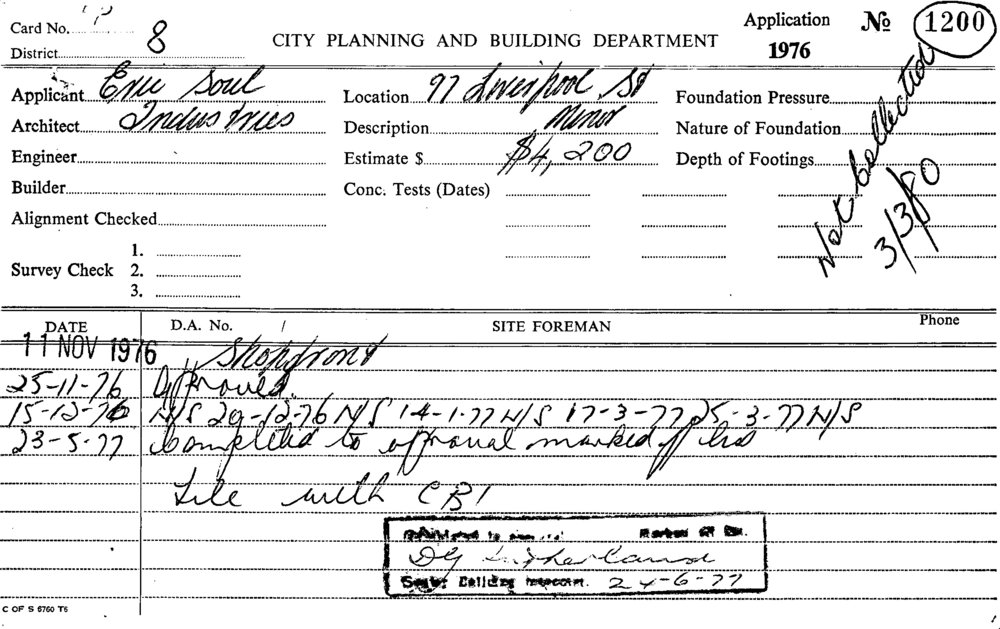 Card No.
District 8
CITY PLANNING AND BUILDING DEPARTMENT
Application № 1200
1976
Applicant Eric Soul
Architect Industries
Engineer
Builder
Alignment Checked
Survey Check 1.
2.
3.
Location 97 Liverpool St
Description Minor
Estimate $ $4,200
Conc. Tests (Dates)
Foundation Pressure
Nature of Foundation
Depth of Footings
Not Collected
3/3/80
DATE D.A. No. SITE FOREMAN Phone
11 NOV 1976 Shopfront
25-11-76 Approved.
15-12-76 N/S 20-12-76 N/S 14-1-77 N/S 17-3-77 25-3-77 N/S
23-5-77 Completed to aproval marked off
File with CBI
DG Sutherland
Senior Building Inspector. 24-6-77
C OF S 6760 T6